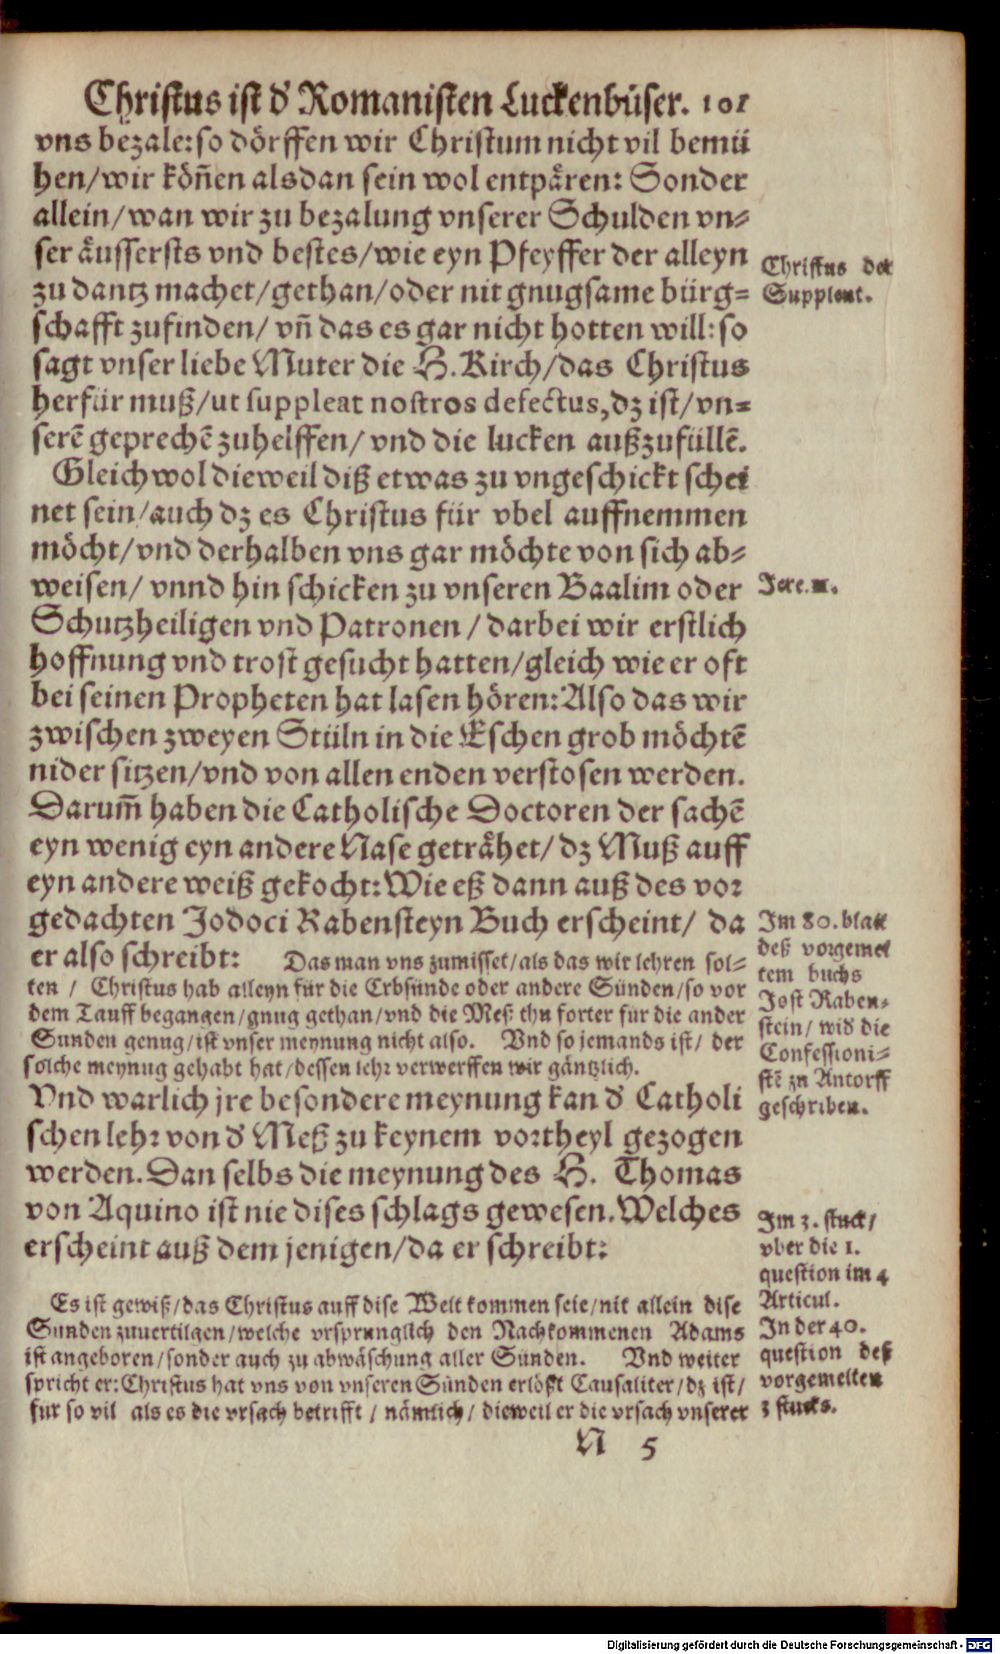 Christus ist d' Romanisten Luckenbüser. 101
vns bezale: so dörffen wir Christum nicht vil bemü
hen/wir köñen alsdan sein wol entpären: Sonder
allein/wan wir zu bezalung vnserer Schulden vn-
ser äussersts vnd bestes/wie eyn Pfeyffer der alleyn
zu dantz machet/gethan/oder nit gnugsame bürg-
schafft zufinden/ vñ das es gar nicht hotten will: so
sagt vnser liebe Muter die H. Kirch/das Christus
herfür muß/ut suppleat nostros defectus, dz ist/vn-
serē geprechē zuhelffen/ vnd die lucken außzufüllē.
Christus der
Suppleat.
Gleichwol dieweil diß etwas zu vngeschickt schei
net sein/auch dz es Christus für vbel auffnemmen
möcht/vnd derhalben vns gar möchte von sich ab-
weisen/ vnnd hin schicken zu vnseren Baalim oder
Schutzheiligen vnd Patronen/darbei wir erstlich
hoffnung vnd trost gesucht hatten/gleich wie er oft
bei seinen Propheten hat lasen hören: Also das wir
zwischen zweyen Stüln in die Eschen grob möchtē
nider sitzen/vnd von allen enden verstosen werden.
Darum̄ haben die Catholische Doctoren der sachē
eyn wenig eyn andere Nase geträhet/ dz Muß auff
eyn andere weiß gekocht: Wie eß dann auß des vor
gedachten Jodoci Rabensteyn Buch erscheint/ da
er also schreibt: Das man vns zumisset/als das wir lehren sol-
ten / Christus hab alleyn für die Erbsünde oder andere Sünden/so vor
dem Tauff begangen/gnug gethan/vnd die Meß thu forter für die ander
Sunden genug/ist vnser meynung nicht also. Vnd so jemands ist/ der
solche meynug gehabt hat/dessen lehr verwerffen wir gäntzlich.
Jere.
Im 80. blatt
deß vorgemel
tem buchs
Jost Raben-
stein/ wid' die
Confessioni-
stē zu Antorff
geschriben.
Vnd warlich jre besondere meynung kan d' Catholi
schen lehr von d' Meß zu keynem vortheyl gezogen
werden. Dan selbs die meynung des H. Thomas
von Aquino ist nie dises schlags gewesen. Welches
erscheint auß dem jenigen/da er schreibt:
Es ist gewiß/das Christus auff dise Welt kommen seie/nit allein dise
Sunden zuuertilgen/welche vrsprunglich den Nachkommenen Adams
ist angeboren/sonder auch zu abwäschung aller Sünden. Vnd weiter
spricht er: Christus hat vns von vnseren Sünden erlößt Causaliter/dz ist/
für so vil als es die vrsach betrifft / nämlich / dieweil er die vrsach vnserer
Im 3. stuck/
vber die 1.
question im 4
Articul.
In der 40.
question deß
vorgemelten
3 stucks.
N 5
Digitalisierung gefördert durch die Deutsche Forschungsgemeinschaft - DFG